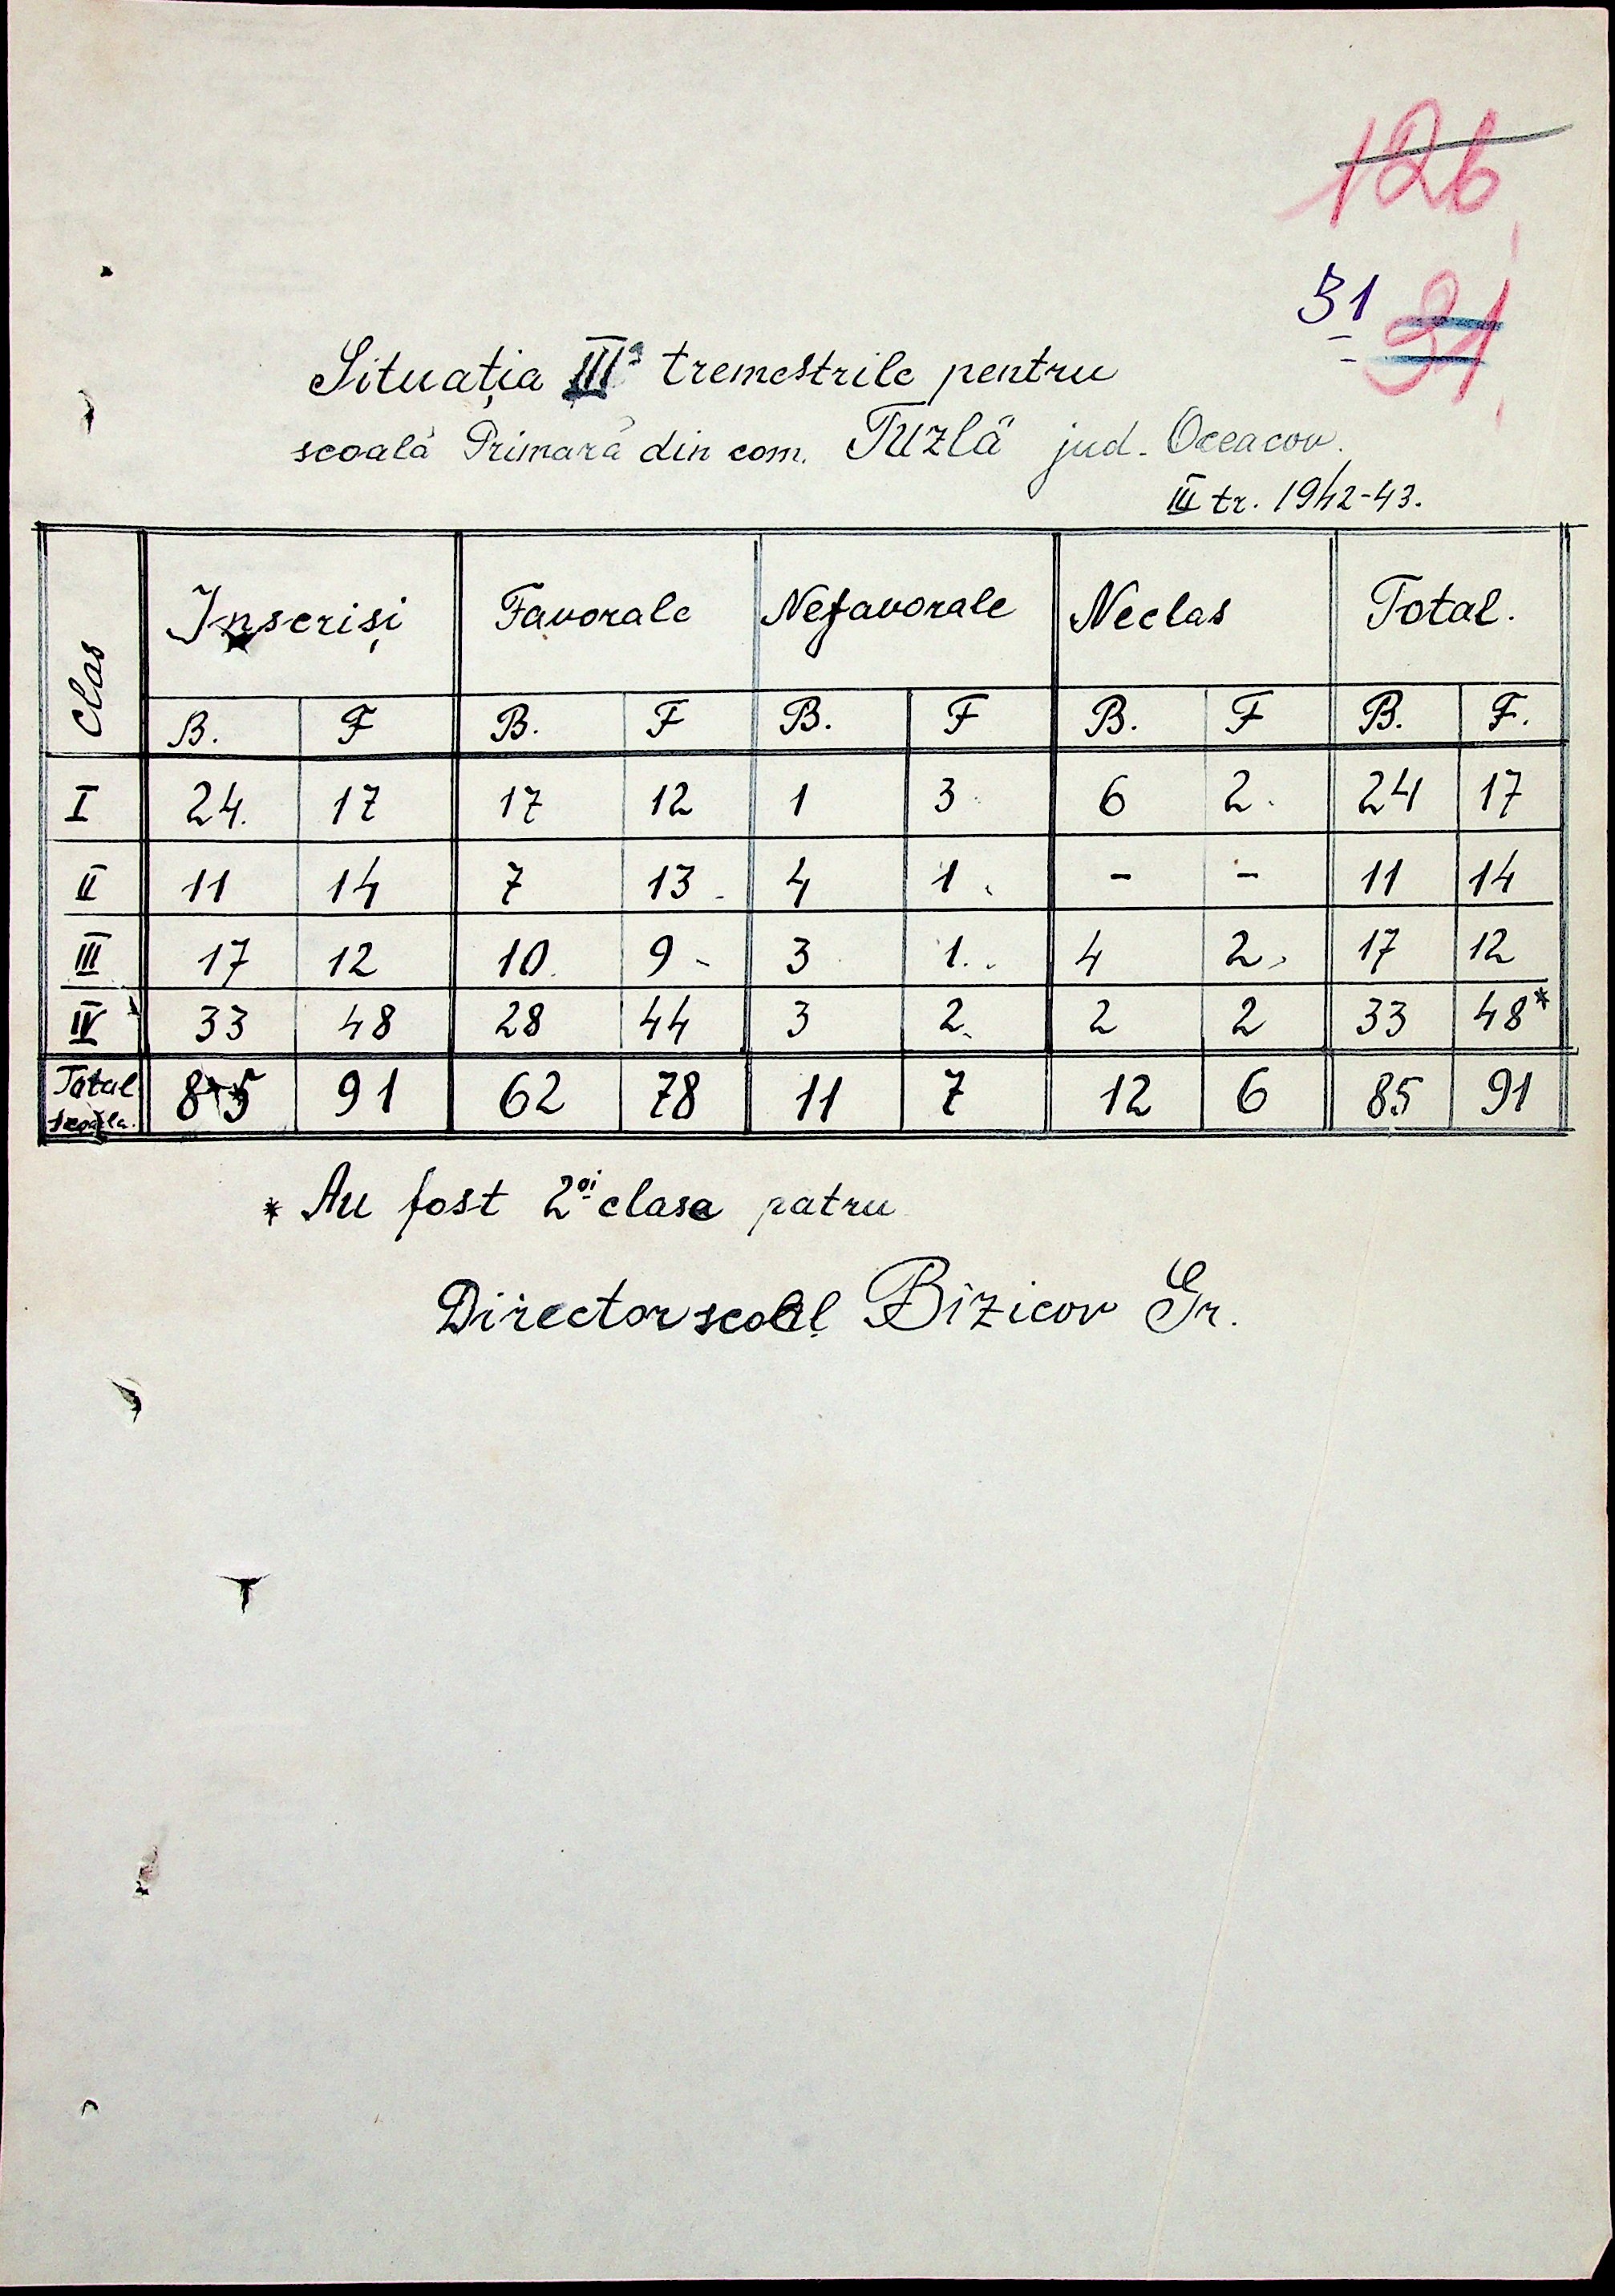 126
31 31
Situația IIIa tremestrile pentru
scoală Primară din com. Tuzlă jud. Oceacov.
III tr. 1942-43.
Clas Inscriși Favorale Nefavorale Neclas Total.
B. F B. F B. F B. F B. F.
I 24. 17 17 12 1 3 6 2. 24 17
II 11 14 7 13 4 1 - - 11 14
III 17 12 10. 9 3 1. 4 2 17 12
IV 33 48 28 44 3 2 2 2 33 48*
Total scoala. 85 91 62 78 11 7 12 6 85 91
* Au fost 2oi clase patru
Director scoal Bizicov Gr.